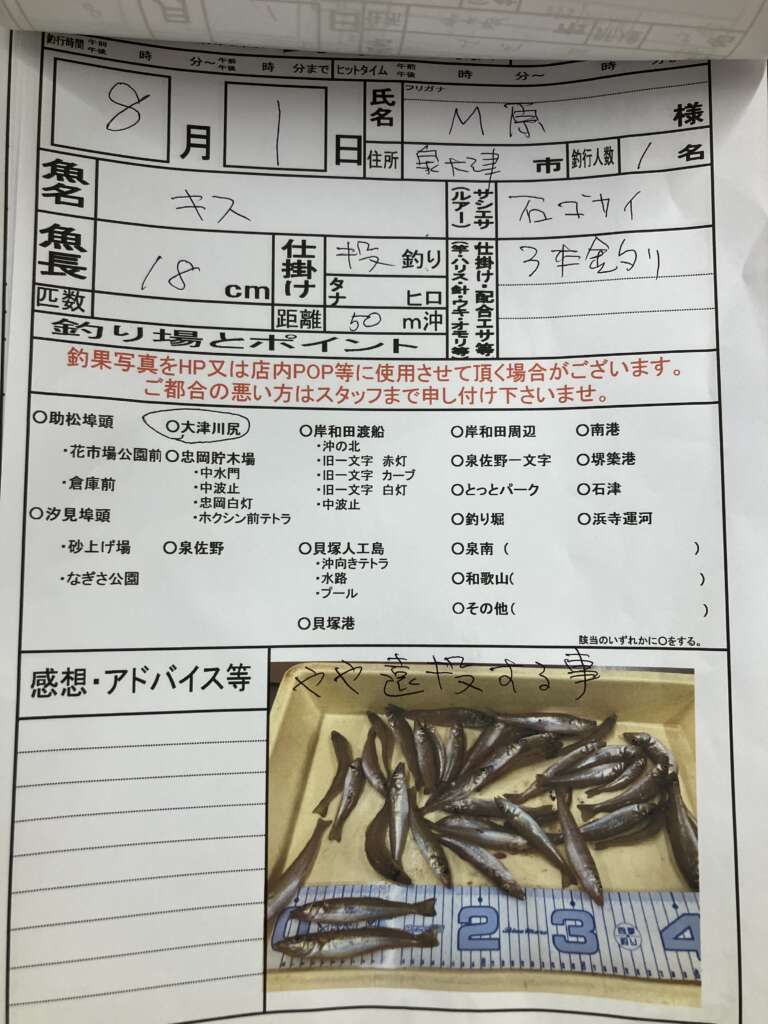 釣行時間 午前 午後 時 分～ 午前 午後 時 分まで ヒットタイム 午前 午後 時 分～ 時 分
8月1日
氏名 フリガナ M原 様
住所 泉大津 市 釣行人数 1名
魚名 キス
サシエサ(ルアー) 石ゴカイ
魚長 18cm
仕掛け 投釣り
タナ ヒロ
仕掛け・配合エサ等(竿・ハリス・針・ウキ・オモリ等) 3本針
匹数
距離 50m沖
釣り場とポイント
釣果写真をHP又は店内POP等に使用させて頂く場合がございます。
ご都合の悪い方はスタッフまで申し付け下さいませ。
○助松埠頭
・花市場公園前
・倉庫前
○汐見埠頭
・砂上げ場
・なぎさ公園
○大津川尻
○忠岡貯木場
・中水門
・中波止
・忠岡白灯
・ホクシン前テトラ
○泉佐野
○岸和田渡船
・沖の北
・旧一文字 赤灯
・旧一文字 カーブ
・旧一文字 白灯
・中波止
○貝塚人工島
・沖向きテトラ
・水路
・プール
○貝塚港
○岸和田周辺
○泉佐野一文字
○とっとパーク
○釣り堀
○泉南( )
○和歌山( )
○その他( )
○南港
○堺築港
○石津
○浜寺運河
該当のいずれかに○をする。
感想・アドバイス等
やや遠投する事
2 3 4